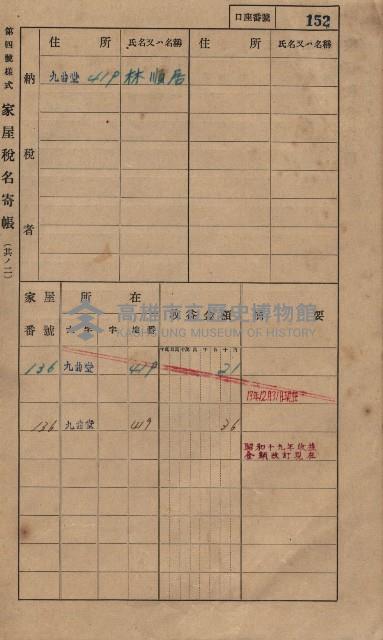 口座番號 152
第四號樣式 家屋稅名寄帳 (其ノ二)
納稅者
住所 氏名又ハ名稱 住所 氏名又ハ名稱
九曲堂 419 林順居
家屋番號 所在 收益金額 摘要
大字 字 地番
136 九曲堂 419 21
136 九曲堂 419 36
昭和十九年收益
金額改訂現在
高雄市立歷史博物館
KAOHSIUNG MUSEUM OF HISTORY